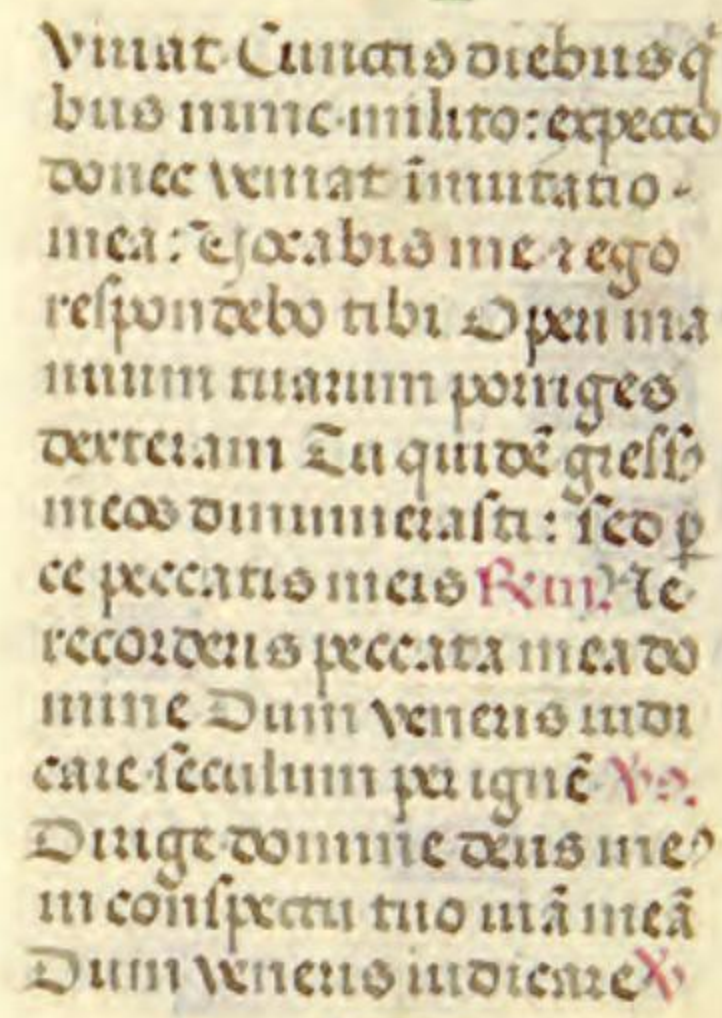 viuat Cunctis diebus q
bus nunc milito: expecto
donec veniat īmutatio
mea: Uocabis me ⁊ ego
respondebo tibi Operi ma
nuum tuarum porriges
dexteram Tu quidē gress⁹
meos dinumerasti: sed ꝑ
ce peccatis meis ℟ iii. Ne
recorderis peccata mea do
mine Dum veneris iudi
care seculum per ignē ℣.
Dirige domine deus me⁹
in conspectu tuo uiā meā
Dum veneris iudicare ℣